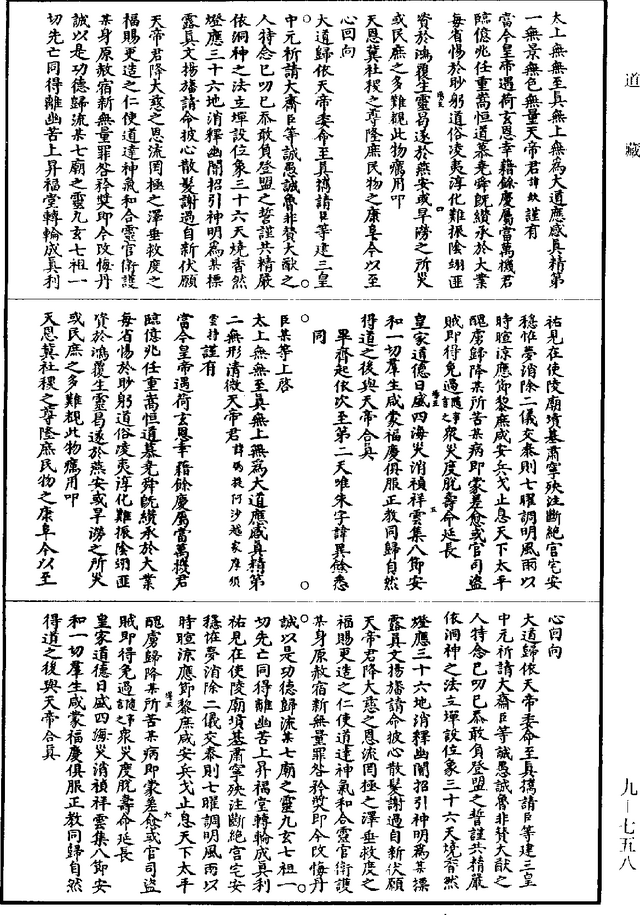 道藏
太上無無至真無上無為大道應感真精第
一無景無色無量天帝君諱欽謹有
當今皇帝遇荷玄恩幸藉餘慶屬當萬機君
臨億兆任重嵩恒道慕堯舜旣纘承於大業
每省惕於眇躬道俗淩夷淳化難振陰翊匪
資於鴻覆生靈曷遂於燕安或旱澇之所災
或民庶之多難覩此物癘用叩
天恩冀社稷之尊隆庶民物之康阜今以至
心回向
大道歸依天帝委命至真攜請臣等建三皇
中元祈請大齋臣等誠愚誠魯非贊大猷之
人特念已叨已忝敢負登盟之誓謹共精嚴
依洞神之法立壇設位象三十六天燒香然
燈應三十六地消釋幽闇招引神明為某標
露真文揚旛請命披心散髮謝過自新伏願
天帝君降大慈之恩流罔極之澤垂救度之
福賜更造之仁使道達神氣和合靈官衛護
某身原赦宿新無量罪咎矜獎即今改悔丹
誠以是功德歸流某七廟之靈九玄七祖一
切先亡同得離幽苦上昇福堂轉輪成真利
祐見在使陵廟墳基肅寧殃注斷絕官宅安
穩恠夢消除二儀交泰則七曜調明風雨以
時暄涼應節黎庶咸安兵戈止息天下太平
醜虜歸降某所苦某病即蒙差愈或官司盜
賊即得免過隨事言之衆災度脫壽命延長
皇家道德日盛四海災消禎祥雲集八節安
和一切羣生咸蒙福慶俱服正教同歸自然
得道之後與天帝合真
畢齊起依次至第二天唯朱字諱異餘悉
同
臣某等上啓
太上無無至真無上無為大道應感真精第
二無形清微天帝君諱
謹有
當今皇帝遇荷玄恩幸藉餘慶屬當萬機君
臨億兆任重嵩恒道慕堯舜旣纘承於大業
每省惕於眇躬道俗淩夷淳化難振陰翊匪
資於鴻覆生靈曷遂於燕安或旱澇之所災
或民庶之多難覩此物癘用叩
天恩冀社稷之尊隆庶民物之康阜今以至
心回向
大道歸依天帝委命至真攜請臣等建三皇
中元祈請大齋臣等誠愚誠魯非贊大猷之
人特念已叨已忝敢負登盟之誓謹共精嚴
依洞神之法立壇設位象三十六天燒香然
燈應三十六地消釋幽闇招引神明為某標
露真文揚旛請命披心散髮謝過自新伏願
天帝君降大慈之恩流罔極之澤垂救度之
福賜更造之仁使道達神氣和合靈官衛護
某身原赦宿新無量罪咎矜獎即今改悔丹
誠以是功德歸流某七廟之靈九玄七祖一
切先亡同得離幽苦上昇福堂轉輪成真利
祐見在使陵廟墳基肅寧殃注斷絕官宅安
穩恠夢消除二儀交泰則七曜調明風雨以
時暄涼應節黎庶咸安兵戈止息天下太平
醜虜歸降某所苦某病即蒙差愈或官司盜
賊即得免過隨事言之衆災度脫壽命延長
皇家道德日盛四海災消禎祥雲集八節安
和一切羣生咸蒙福慶俱服正教同歸自然
得道之後與天帝合真
九－七五八